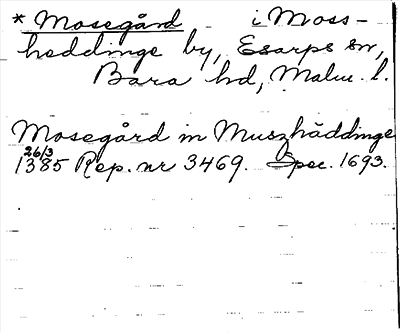 * Mosegård i Moss-
heddinge by, Esarps sn,
Bara hd, Malm. l.
Mosegård in Muszhäddinge
26/3
1385 Rep. nr 3469. Spec. 1693.